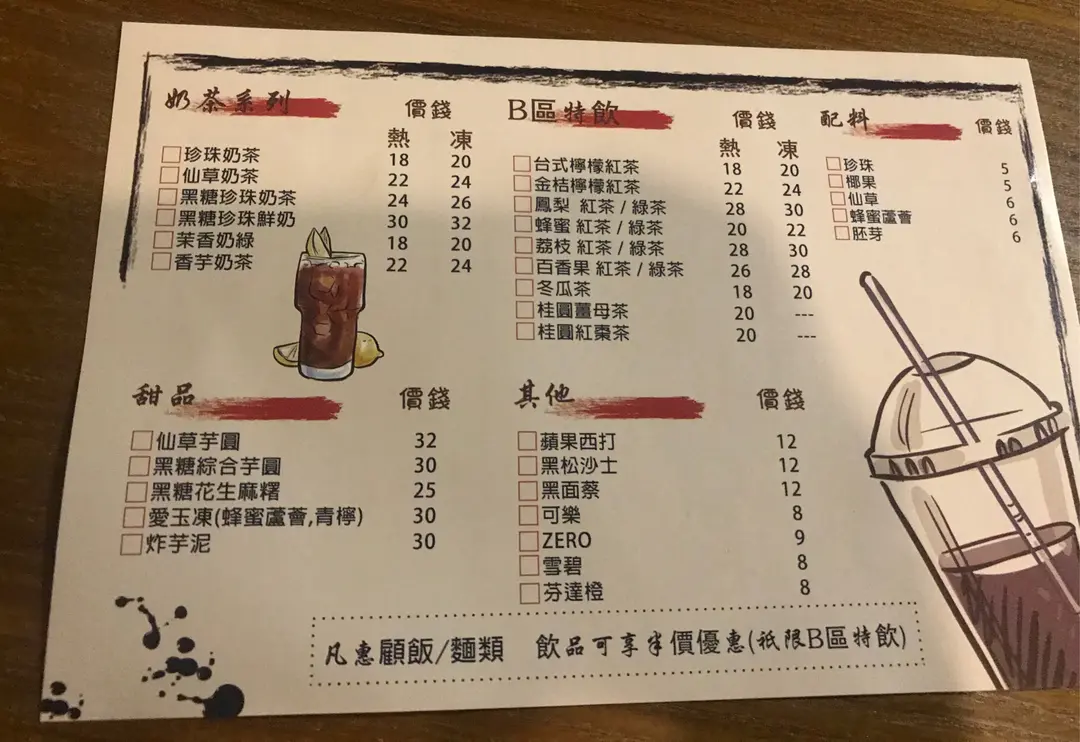 奶茶系列 價錢
熱 凍
珍珠奶茶 18 20
仙草奶茶 22 24
黑糖珍珠奶茶 24 26
黑糖珍珠鮮奶 30 32
茉香奶綠 18 20
香芋奶茶 22 24
B區特飲 價錢
熱 凍
台式檸檬紅茶 18 20
金桔檸檬紅茶 22 24
鳳梨 紅茶 / 綠茶 28 30
蜂蜜 紅茶 / 綠茶 20 22
荔枝 紅茶 / 綠茶 28 30
百香果 紅茶 / 綠茶 26 28
冬瓜茶 18 20
桂圓薑母茶 20 ---
桂圓紅棗茶 20 ---
配料 價錢
珍珠 5
椰果 5
仙草 6
蜂蜜蘆薈 6
胚芽 6
甜品 價錢
仙草芋圓 32
黑糖綜合芋圓 30
黑糖花生麻糬 25
愛玉凍(蜂蜜蘆薈,青檸) 30
炸芋泥 30
其他 價錢
蘋果西打 12
黑松沙士 12
黑面蔡 12
可樂 8
ZERO 9
雪碧 8
芬達橙 8
凡惠顧飯/麵類 飲品可享半價優惠(祇限B區特飲)